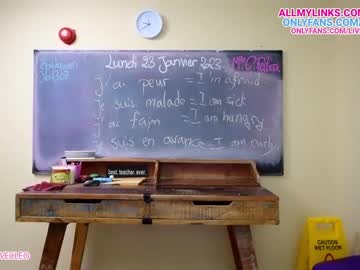 ALLMYLINKS.COM/
ONLYFANS.COM/
ONLYFANS.COM/LIV
Lundi 23 Janvier 2023
J'ai peur = I'm afraid
Je suis malade = I am sick
J'ai faim = I am hungry
Je suis en avance = I am early
best. teacher. ever.
CAUTION
WET FLOOR
VECLEO